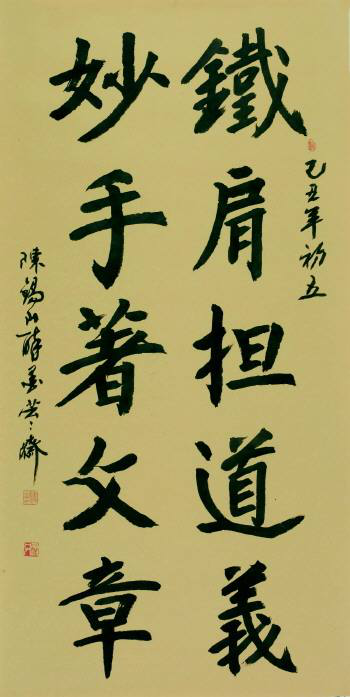 己丑年初五
鐵肩担道義
妙手著文章
陳錫山醉墨齋